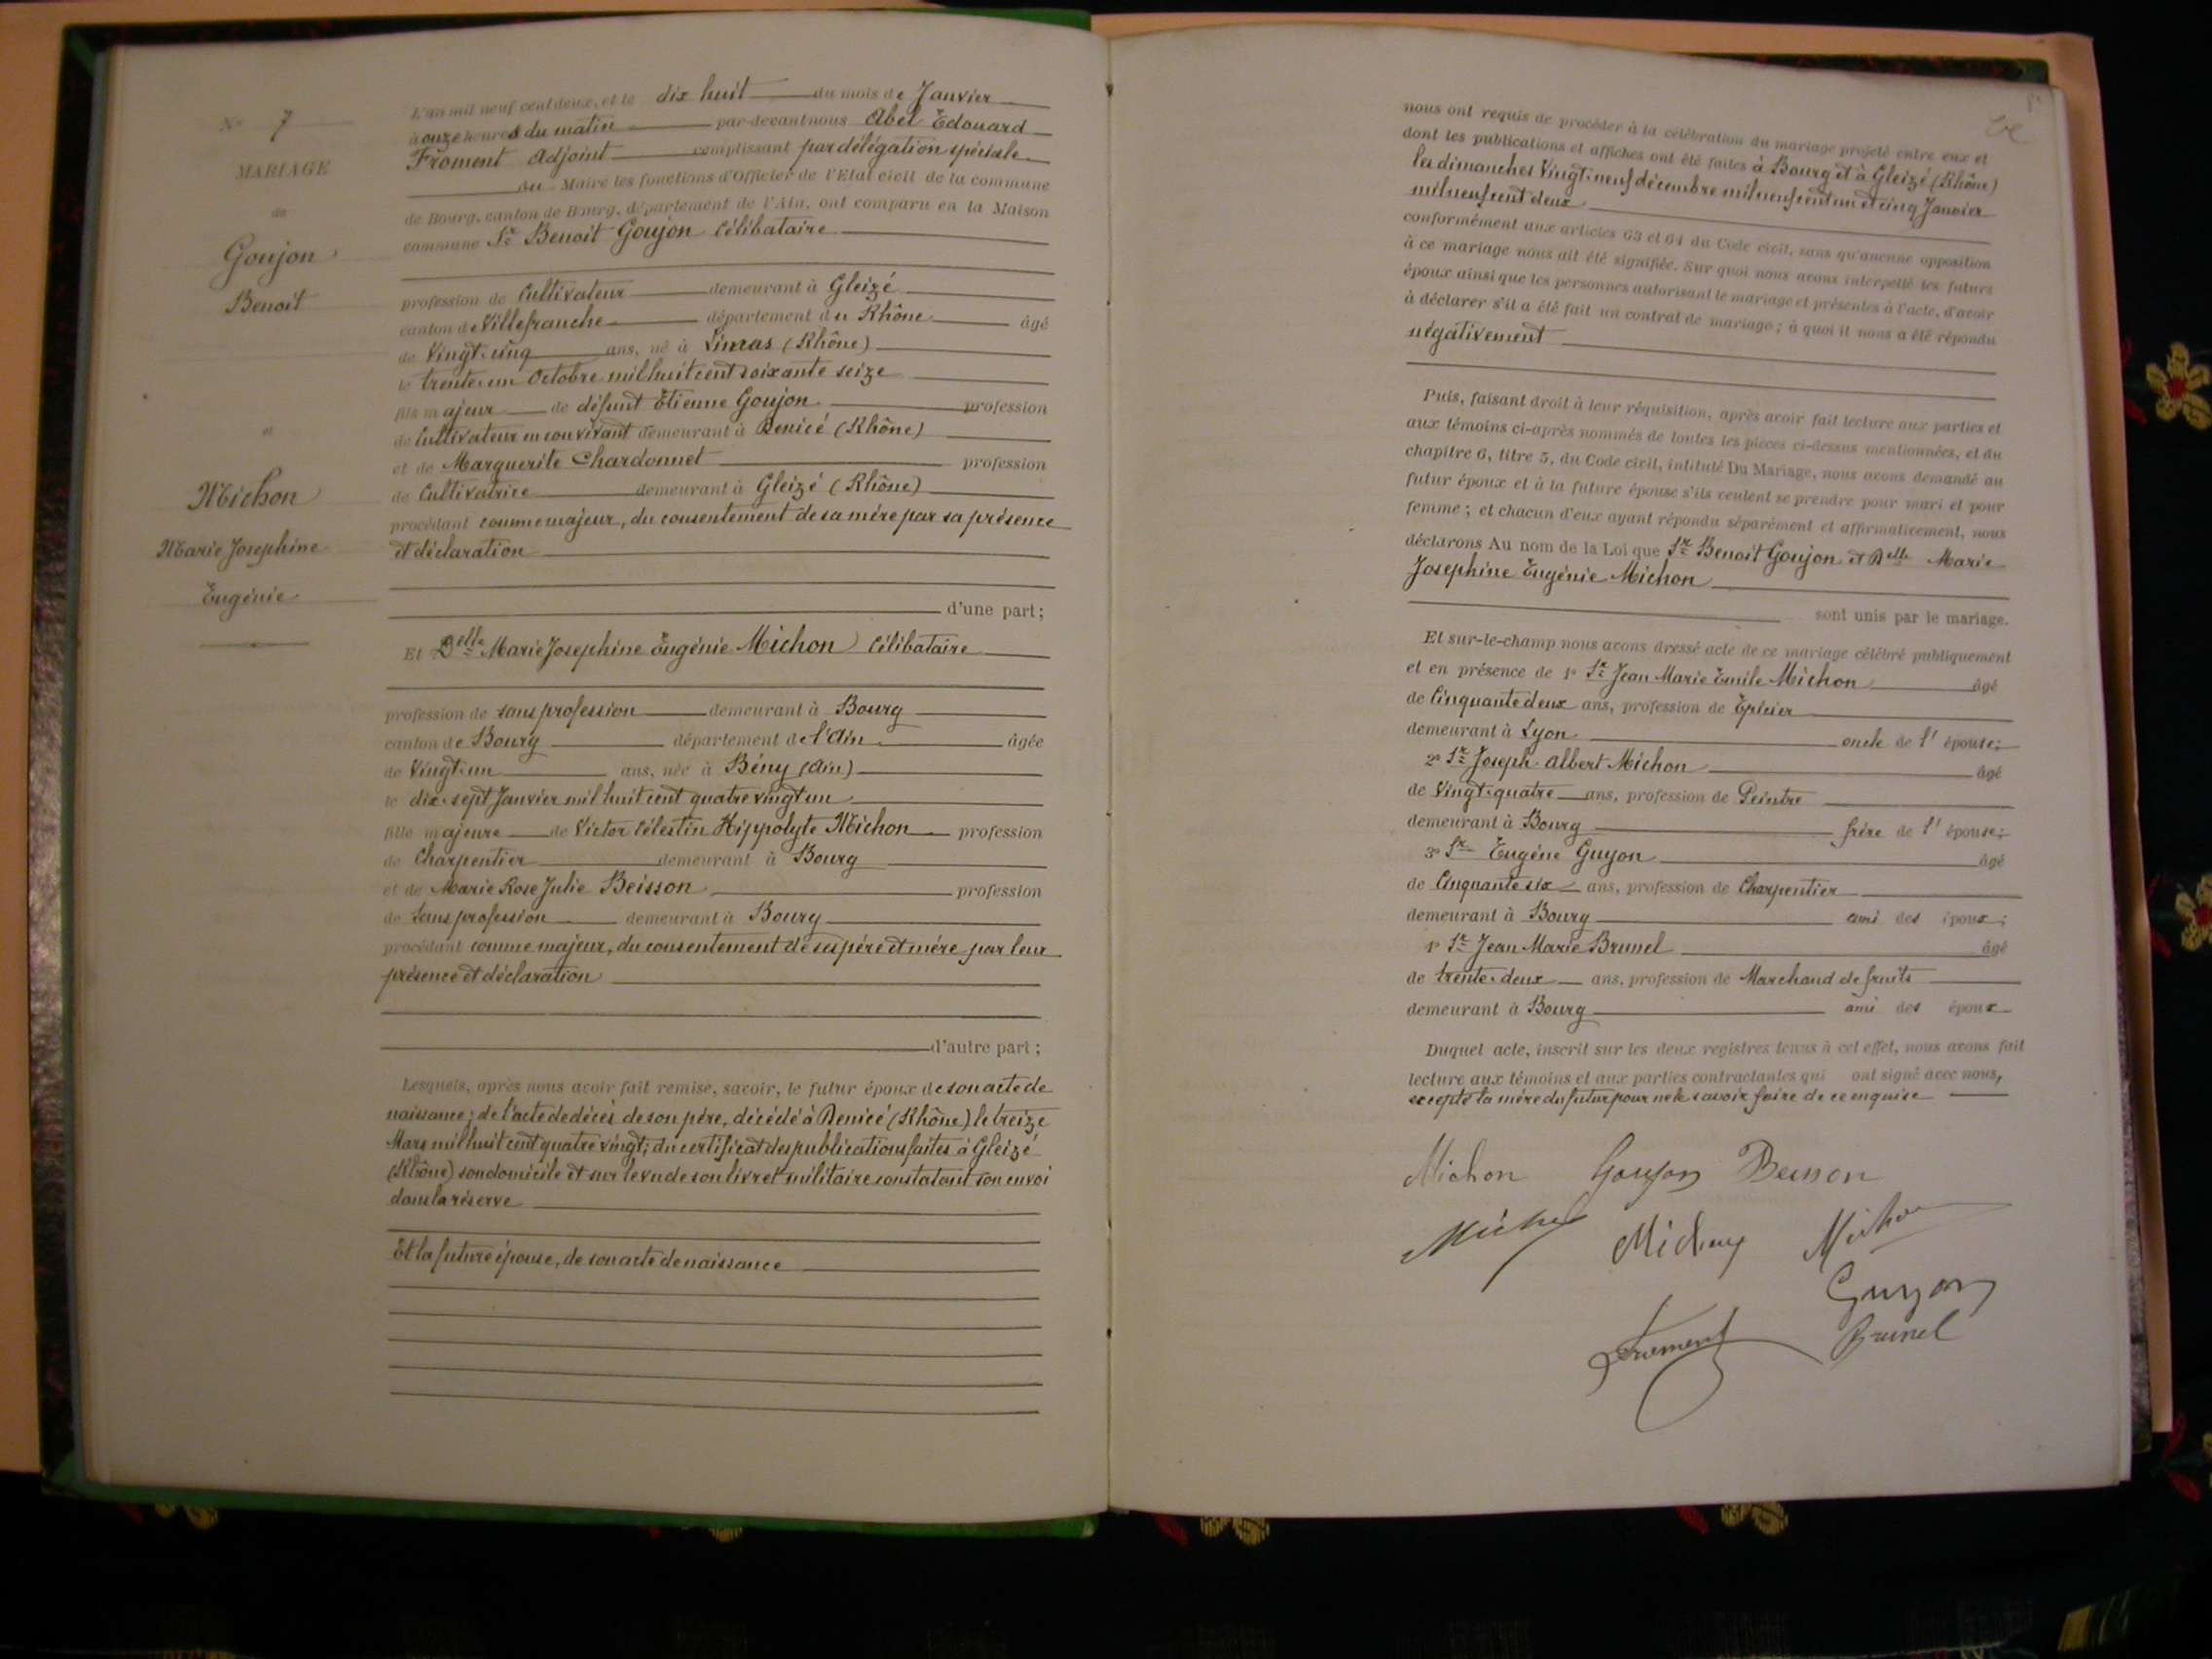 N° 7
MARIAGE
de
Goujon
Benoit
et
Michon
Marie Josephine
Eugénie
L'an mil neuf cent deux, et le dix huit du mois de Janvier
à onze heures du matin par-devant nous Abel Edouard
Froment Adjoint remplissant par délégation spéciale
du Maire les fonctions d'Officier de l'Etat civil de la commune
de Bourg, canton de Bourg, département de l'Ain, ont comparu en la Maison
commune Sr Benoit Goujon Célibataire
profession de Cultivateur demeurant à Gleizé
canton de Villefranche département du Rhône âgé
de Vingt-cinq ans, né à Limas (Rhône)
le trente-un Octobre mil huit cent soixante seize
fils majeur de défunt Etienne Goujon profession
de Cultivateur en son vivant demeurant à Denicé (Rhône)
et de Marguerite Chardonnet profession
de Cultivatrice demeurant à Gleizé (Rhône)
procédant comme majeur, du consentement de sa mère par sa présence
et déclaration
d'une part;
Et Delle Marie Josephine Eugénie Michon Célibataire
profession de sans profession demeurant à Bourg
canton de Bourg département de l'Ain âgée
de Vingt-un ans, née à Bény (Ain)
le dix-sept Janvier mil huit cent quatre vingt un
fille majeure de Victor Célestin Hippolyte Michon profession
de Charpentier demeurant à Bourg
et de Marie Rose Julie Beisson profession
de Sans profession demeurant à Bourg
procédant comme majeur, du consentement de ses père et mère par leur
présence et déclaration
d'autre part;
Lesquels, après nous avoir fait remise, savoir, le futur époux de son acte de
naissance; de l'acte de décès de son père, décédé à Denicé (Rhône) le treize
Mars mil huit cent quatre vingt; du certificat des publications faites à Gleizé
(Rhône) son domicile et sur le vu de son livret militaire constatant son envoi
dans la réserve
Et la future épouse, de son acte de naissance
nous ont requis de procéder à la célébration du mariage projeté entre eux et
dont les publications et affiches ont été faites à Bourg et à Gleizé (Rhône)
les dimanches Vingt-neuf décembre mil neuf cent un et cinq Janvier
mil neuf cent deux
conformément aux articles 63 et 64 du Code civil, sans qu'aucune opposition
à ce mariage nous ait été signifiée. Sur quoi nous avons interpellé les futurs
époux ainsi que les personnes autorisant le mariage et présentes à l'acte, d'avoir
à déclarer s'il a été fait un contrat de mariage; à quoi il nous a été répondu
négativement
Puis, faisant droit à leur réquisition, après avoir fait lecture aux parties et
aux témoins ci-après nommés de toutes les pièces ci-dessus mentionnées, et du
chapitre 6, titre 5, du Code civil, intitulé Du Mariage, nous avons demandé au
futur époux et à la future épouse s'ils veulent se prendre pour mari et pour
femme; et chacun d'eux ayant répondu séparément et affirmativement, nous
déclarons Au nom de la Loi que Sr Benoit Goujon et Delle Marie
Josephine Eugénie Michon
sont unis par le mariage.
Et sur-le-champ nous avons dressé acte de ce mariage célébré publiquement
et en présence de 1° Sr Jean Marie Emile Michon âgé
de Cinquante deux ans, profession de Epicier
demeurant à Lyon oncle de l'épouse;
2° Sr Joseph Albert Michon âgé
de Vingt-quatre ans, profession de Peintre
demeurant à Bourg frère de l'épouse;
3° Sr Eugène Guyon âgé
de Cinquante six ans, profession de Charpentier
demeurant à Bourg ami des époux;
4° Sr Jean Marie Brunel âgé
de trente-deux ans, profession de Marchand de fruits
demeurant à Bourg ami des époux
Duquel acte, inscrit sur les deux registres tenus à cet effet, nous avons fait
lecture aux témoins et aux parties contractantes qui ont signé avec nous,
excepté la mère du futur pour ne le savoir faire de ce enquise
Michon Goujon Beisson
Michon Michon Michon
Guyon
Froment Brunel